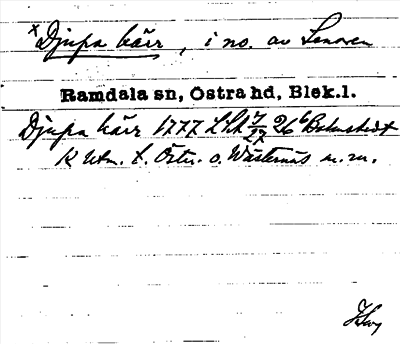 × Djupa kärr, i no. av Senoren
Ramdala sn, Östra hd, Blek.l.
Djupa kärr 1777 LSA 7/27 26 b Behmstedt
K Utm. t. Östr. o. Wästernäs m.m.